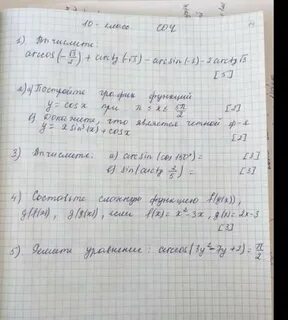 10-класс СОЧ
1) Вычислите:
arccos(-√3/2) + arcctg(-√3) - arcsin(-1) - 2arctg√3
[5]
2) а) Постройте график функций
y = cosx при π ≤ x ≤ 5π/2 [2]
б) Докажите, что является четной ф-я
y = x sin³(x) + cosx [2]
3) Вычислите: а) arcsin(cos 150°) = [2]
б) sin(arcctg 2/5) = [3]
4) Составьте сложную функцию f(g(x)),
g(f(x)), g(g(x)), если f(x) = x² - 3x, g(x) = 2x - 3
[3]
5) Решите уравнение: arccos(3y² - 7y + 2) = π/2